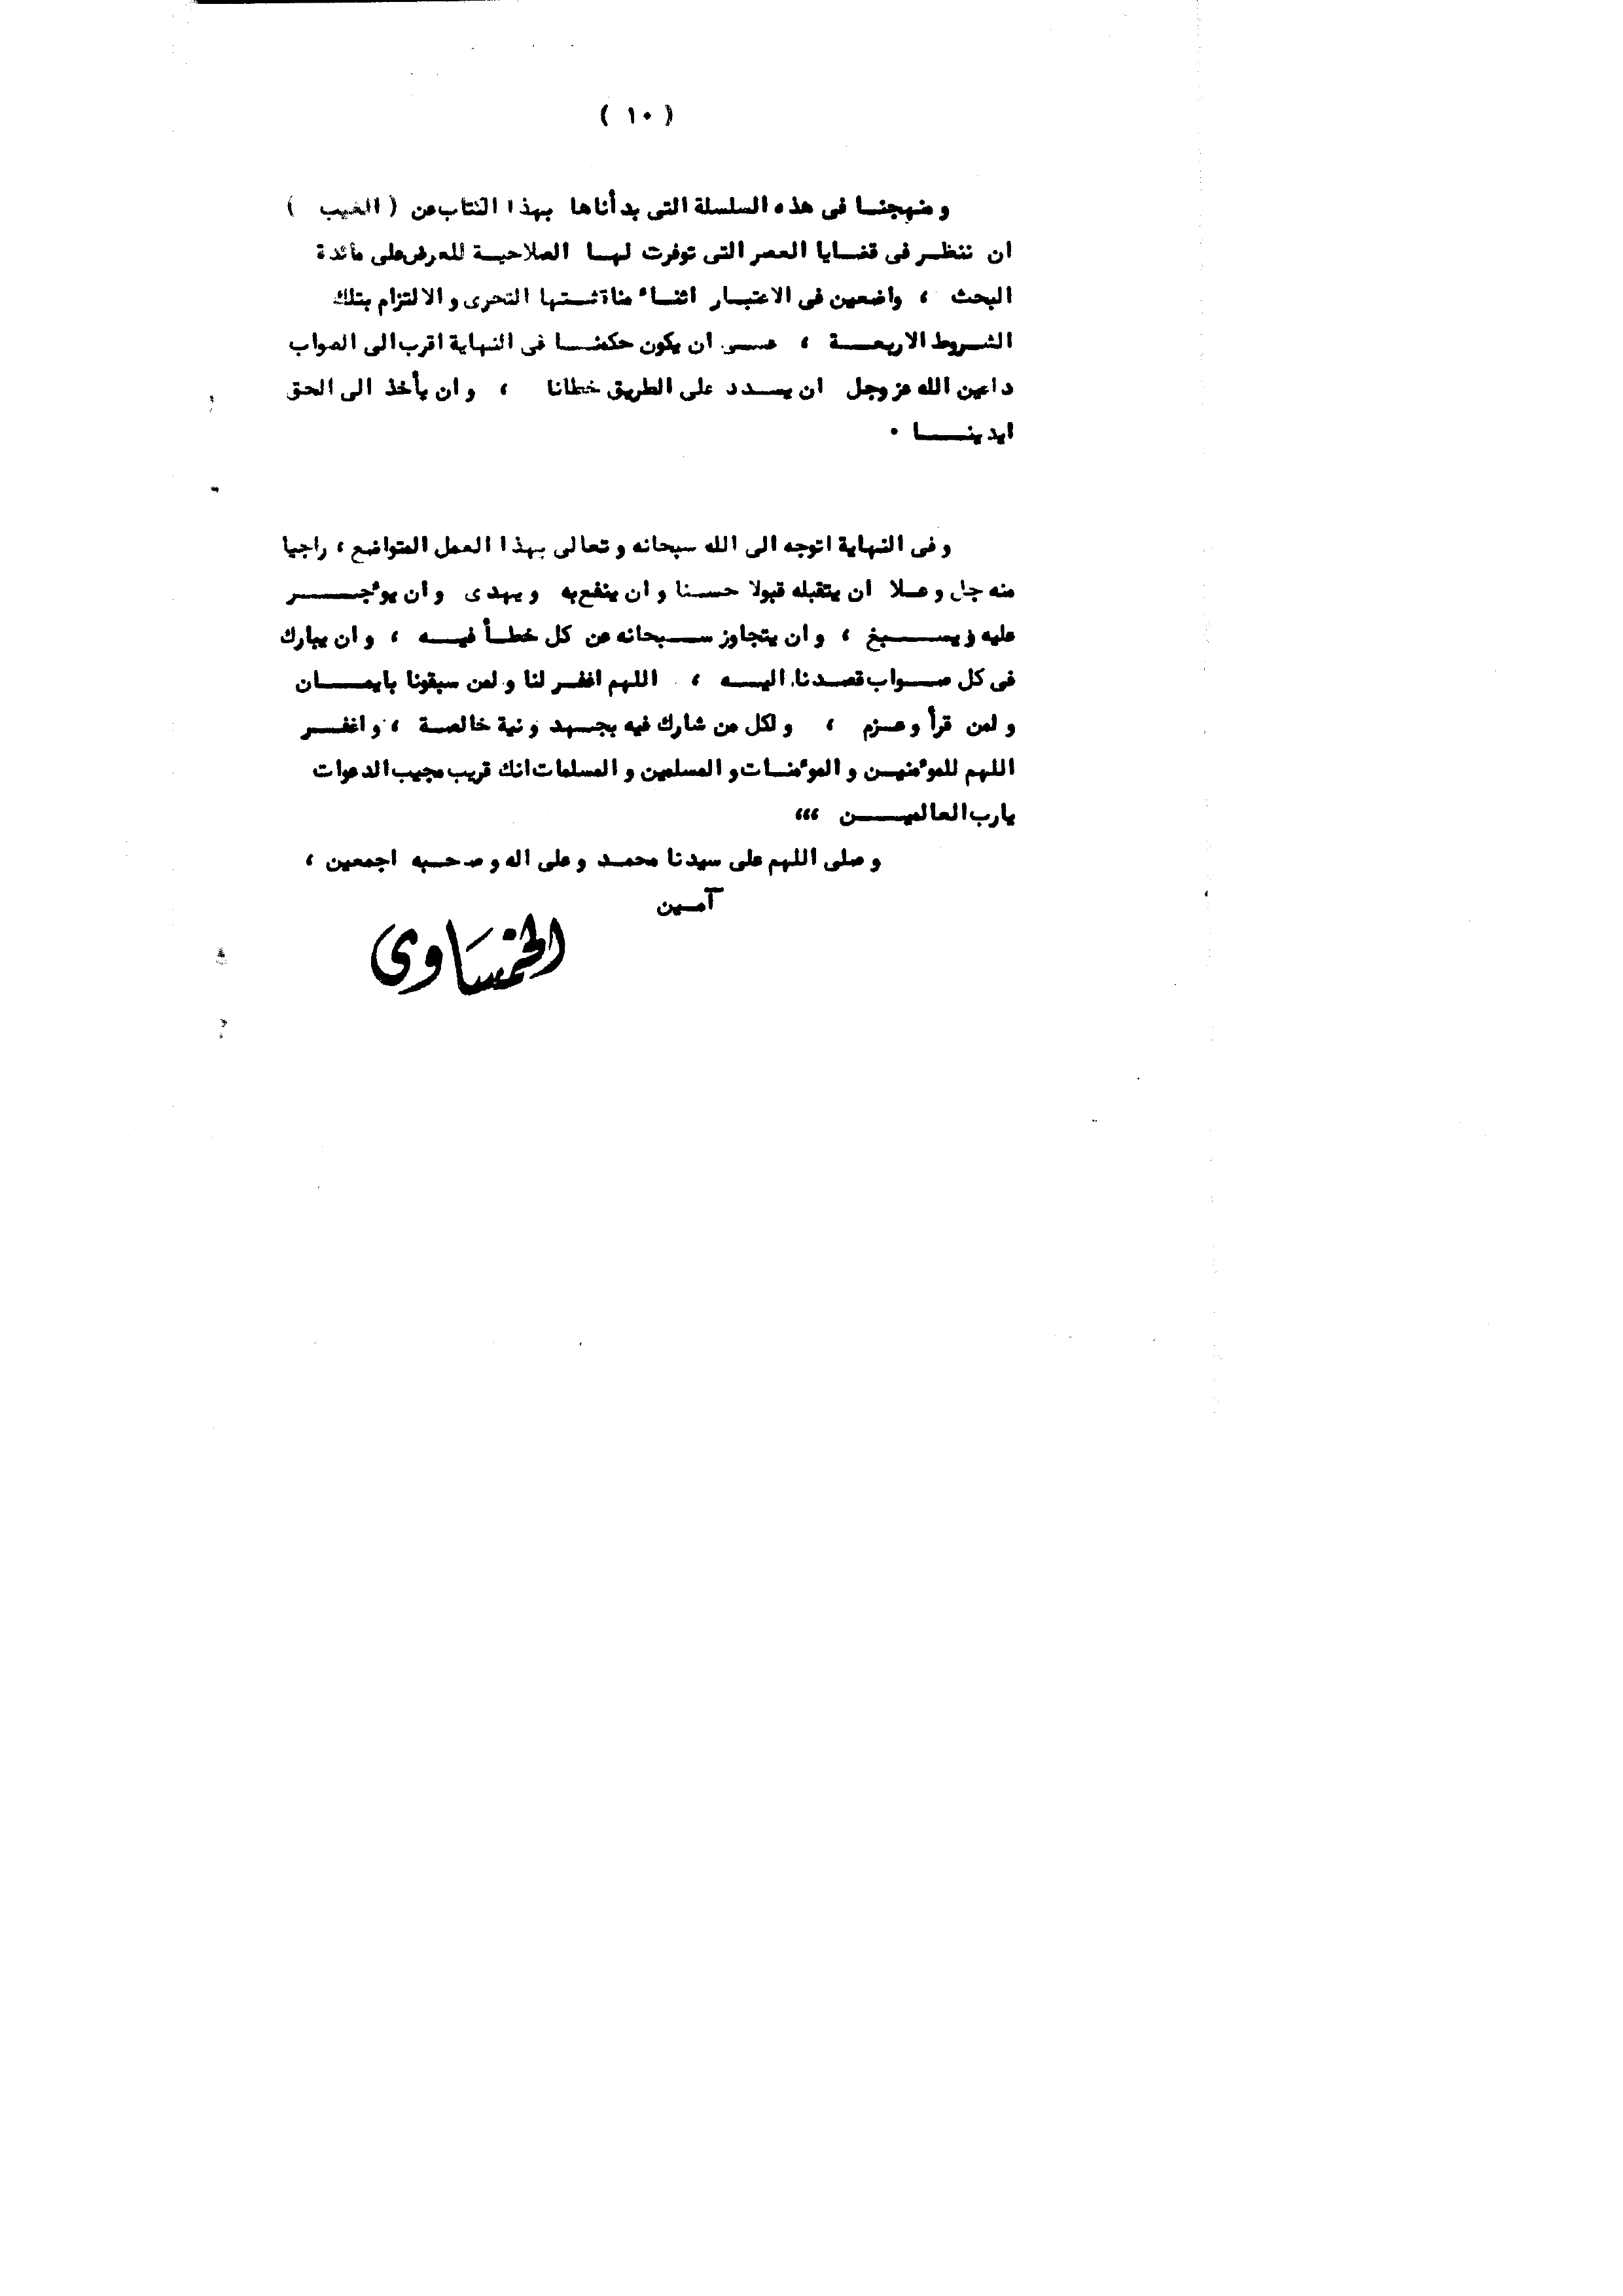 ( ١٠ )
ومنهجنا فى هذه السلسلة التى بدأناها بهذا الكتاب عن ( الغيب )
ان ننظر فى قضايا العصر التى توفرت لها الصلاحية للعرض على مائدة
البحث ، واضعين فى الاعتبار اثناء مناقشتها التحرى والالتزام بتلك
الشروط الاربعة ، عسى ان يكون حكمنا فى النهاية اقرب الى الصواب
داعين الله عز وجل ان يسدد على الطريق خطانا ، وان يأخذ الى الحق
ايدينا ٠
وفى النهاية اتوجه الى الله سبحانه وتعالى بهذا العمل المتواضع ، راجيا
منه جل وعلا ان يتقبله قبولا حسنا وان ينفع به ويهدى وان يؤجر
عليه ويسبغ ، وان يتجاوز سبحانه عن كل خطأ فيه ، وان يبارك
فى كل صواب قصدنا اليه ، اللهم اغفر لنا ولمن سبقونا بايمان
ولمن قرأ وعزم ، ولكل من شارك فيه بجهد ونية خالصة ، واغفر
اللهم للمؤمنين والمؤمنات والمسلمين والمسلمات انك قريب مجيب الدعوات
يارب العالمين ،،،
وصلى اللهم على سيدنا محمد وعلى اله وصحبه اجمعين ،
آمين
الخمساوى